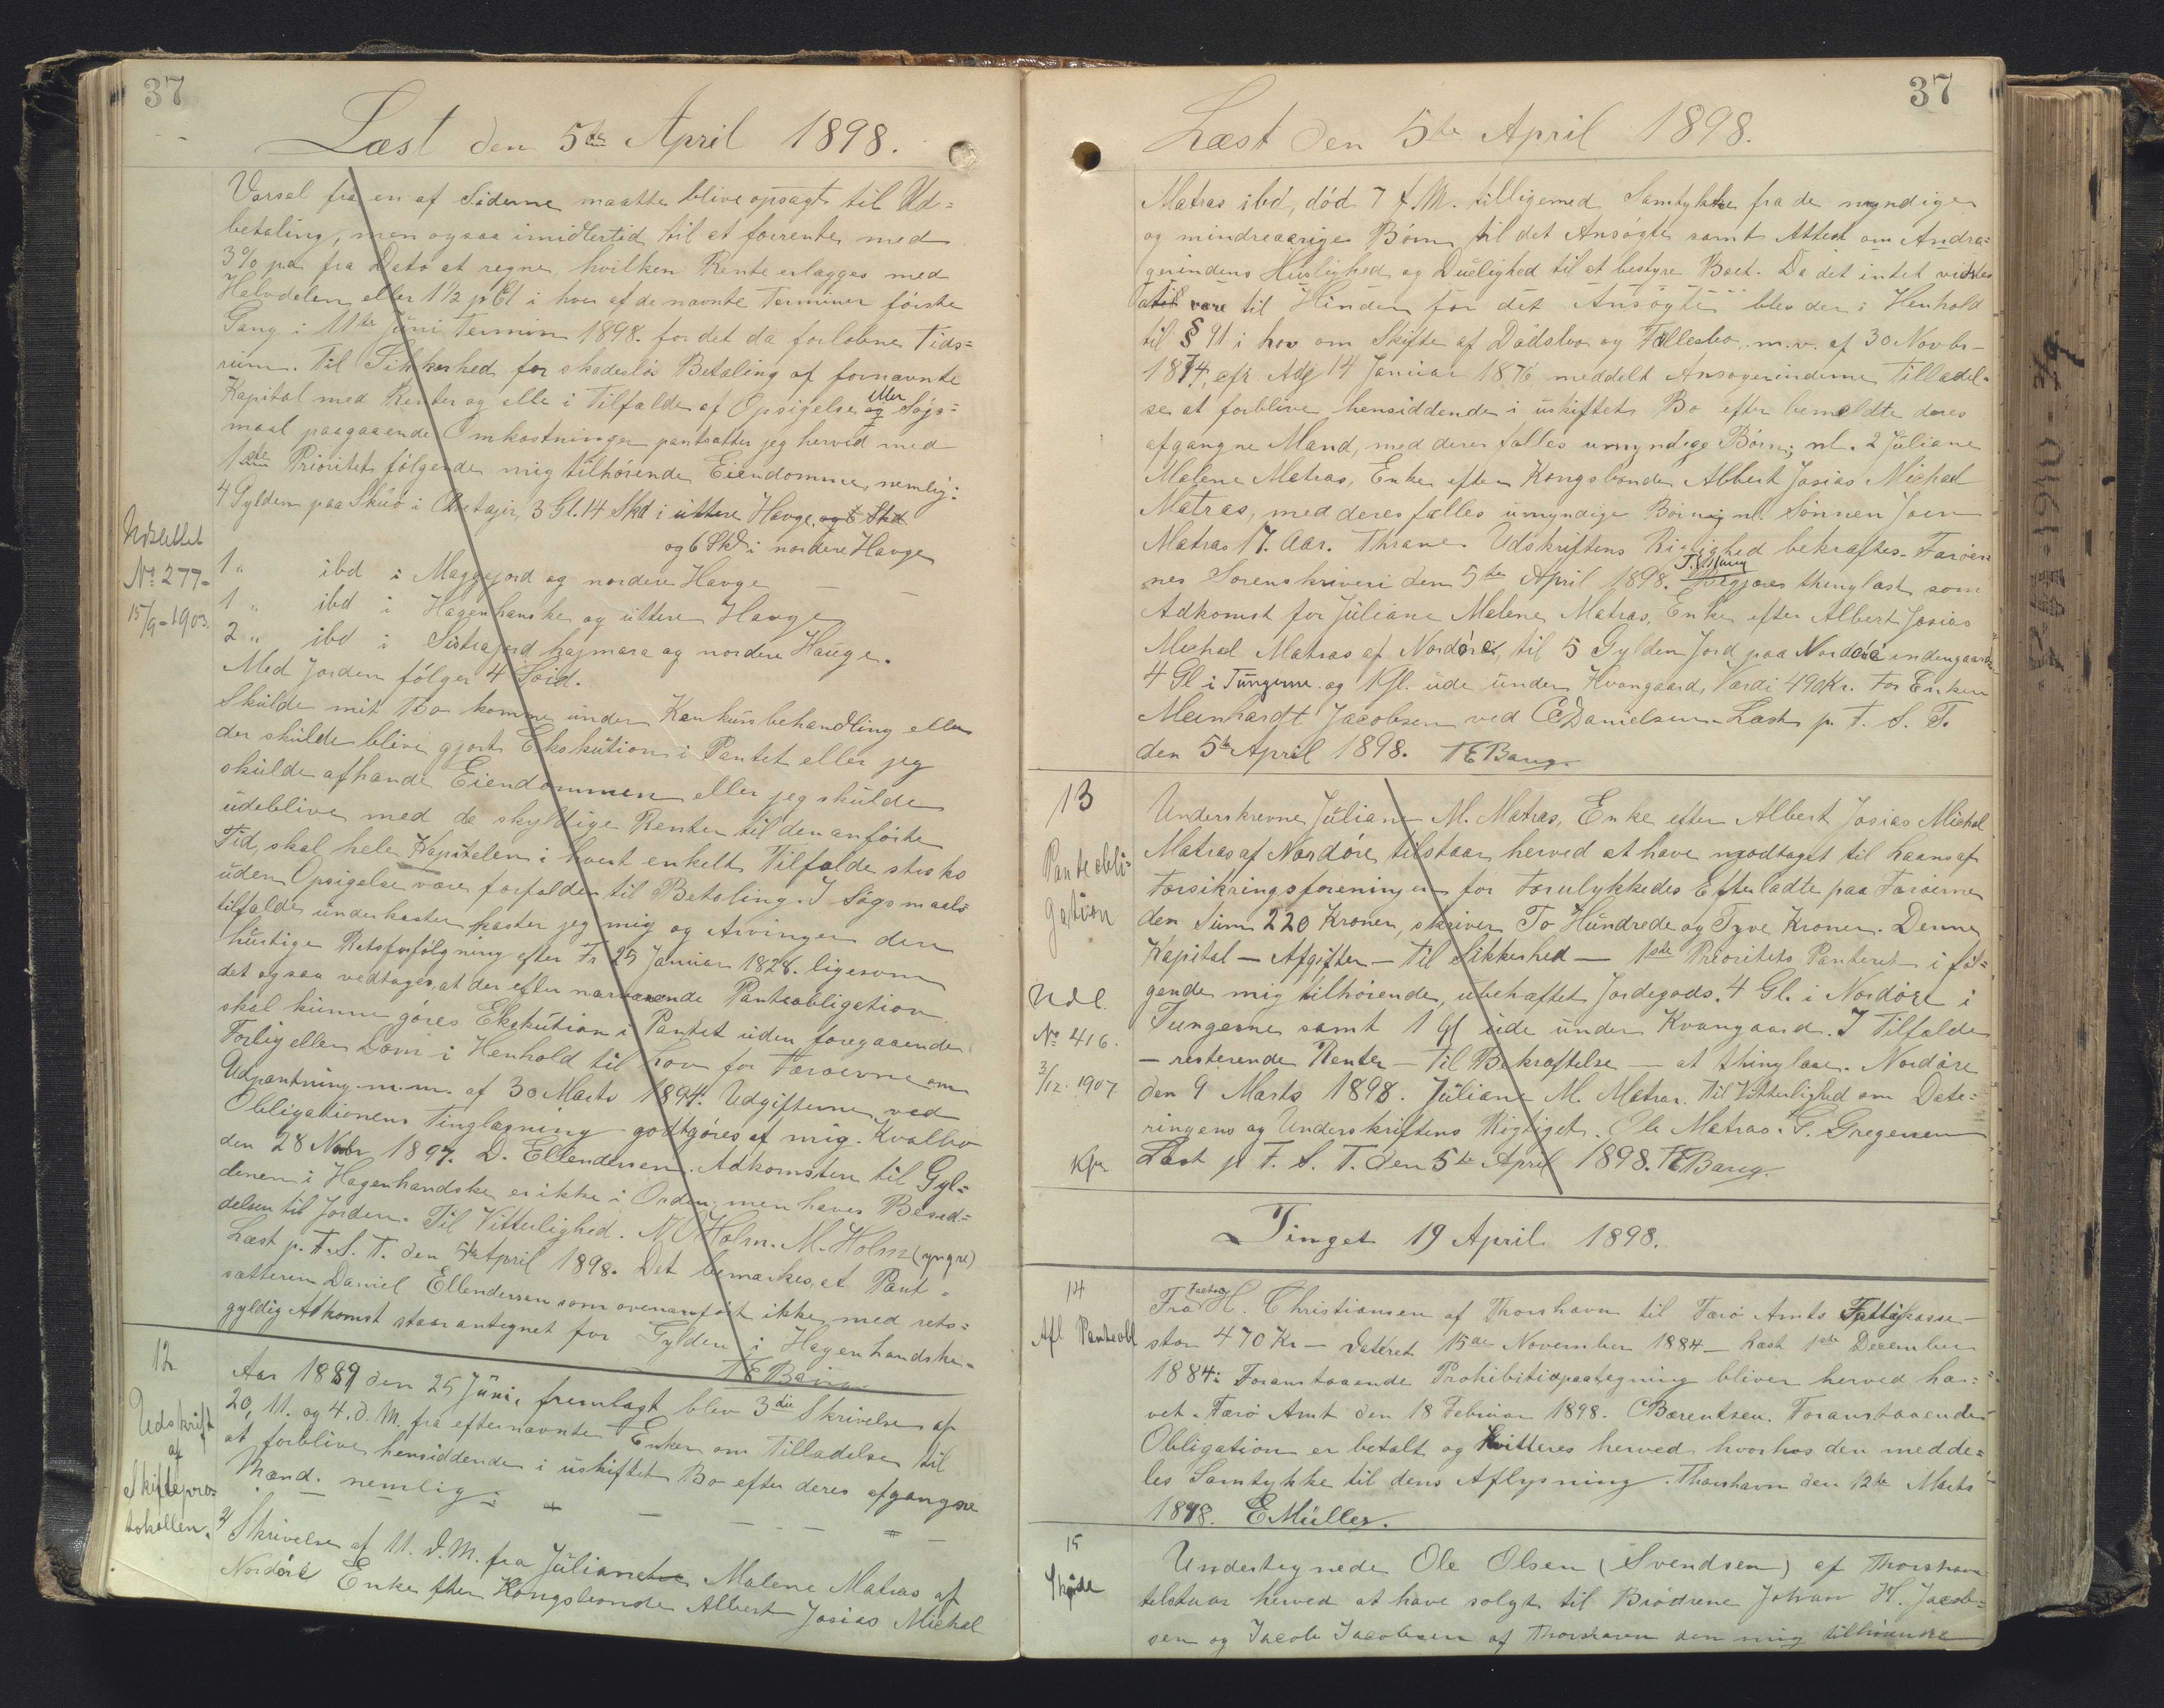 37
Læst den 5te April 1898.
Varsel fra en af Siderne maatte blive opsagt til Ud=
betaling, men ogsaa imidlertid til at forrentes med
3% pa fra Dato at regne, hvilken Rente erlægges med
Halvdelen eller 1 1/2 p Ct i hver af de nævnte Terminer første
Gang i 11te Juni Termin 1898. for det da forløbne Tids=
rum. Til Sikkerhed for skadesløs Betaling af fornævnte
Kapital med Renter og alle i Tilfælde af Opsigelse og eller Søgs=
maal paagaaende Omkostninger pantsætter jeg herved med
1ste Prioritet følgende mig tilhørende Eiendomme, nemlig:
4 Gylden paa Skuø i 3 Gl. 14 Skd i uttere Havge, og 6 Skd
og 6 Skd i nordere Havge
1 " ibd i Maggejord og nordere Havge
1 " ibd i Hagenhanske og uttere Havge
2 " ibd i Sistrajord hajmara og nordere Hauge.
Med Jorden følger 4 Soid.
Udslettet
No 277-
15/9-1903.
Skulde mit Bo komme under Konkursbehandling eller
der skulde blive gjort Ekskution i Pantet eller jeg
skulde afhænde Eiendommen eller jeg skulde
udeblive med de skyldige Renter til den anførte
Tid, skal hele Kapitalen i hvert enkelt Tilfælde straks
uden Opsigelse være forfalden til Betaling. I Søgsmaals
tilfælde underkaster kaster jeg mig og Arvinger den
hurtige Retsforfølgning efter Fr 25 Januar 1828. ligesom
det ogsaa vedtages, at der efter nærværende Panteobligation
skal kunne gøres Ekskution i Pantet uden foregaaende
Forlig eller Dom i Henhold til Lov for Færøerne om
Udpantning m.m. af 30 Marts 1894. Udgifterne ved
Obligationens Tinglæsning godtgøres af mig. Kvalbo
den 28 Novbr 1897. D. Ellendersen. Adkomsten til Gyl=
denen i Hagenhandske er ikke i Orden, men haves Besid=
delsen til Jorden. Til Vitterlighed. N O Holm. M. Holm (yngre)
Læst p. F. S. T. den 5te April 1898. Det bemærkes, at Pant=
sætteren Daniel Ellendersen som ovenanført ikke med rets=
gyldig Adkomst staar antegnet for Gylden i Hagenhandske.
T E Bang
12
Udskrift
af
Skiftepro=
tokollen.
Aar 1889 den 25 Juni, fremlagt blev 3die Skrivelse af
20, 11. og 4. d. M. fra efternævnte Enker om Tilladelse til
at forblive hensiddende i uskiftet Bo efter deres afgangne
Mænd. nemlig:
2/ Skrivelse af 11. d. M. fra Juliane Malene Matras af
Nordøre Enke efter Kongsbonde Albert Josias Michal
37
Læst den 5te April 1898.
Matras ibd, død 7 f. M. tilligemed Samtykke fra de myndige
og mindreaarige Børn til det Ansøgte samt Attest om Andra=
gerindens Huslighed og Duelighed til at bestyre Boet. Da det intet vidstes
at være til Hinder for det Ansøgte blev der i Henhold
til § 91 i Lov om Skifte af Dødsbo og Fællesbo m.v. af 30 Novbr
1874, cfr. Adg 14 Januar 1876 meddelt Ansøgerinderne Tilladel=
se at forblive hensiddende i uskiftet Bo efter bemeldte deres
afgangne Mand, med deres fælles umyndige Børn, nl. 2 Juliane
Malene Matras, Enke efter Kongsbonde Albert Josias Michal
Matras, med deres fælles umyndige Børn, nl. Sønnen Joen
Matras 17. Aar. Thrane. Udskriftens Rigtighed bekræftes. Færøer=
nes Sorenskriveri den 5te April 1898. T. E. Bang Begjæres thinglæst som
Adkomst for Juliane Malene Matras, Enke efter Albert Josias
Michal Matras af Nordøre, til 5 Gylden Jord paa Nordøre indengaards
4 Gl i Tungerne og 1 Gl. ude under Kvangaard, Værdi 490 Kr. For Enken
Meinhardt Jacobsen ved C Danielsen. Læst p. F. S. T.
den 5te April 1898. T E Bang.
13
Panteobli=
gation
Underskrevne Juliane M. Matras, Enke efter Albert Josias Michal
Matras af Nordøre tilstaar herved at have modtaget til Laans af
Forsikringsforeningen for Forulykkedes Efterladte paa Færøerne
den Sum 220 Kroner, skriver To Hundrede og Tyve Kroner. Denne
Kapital — Afgifter — Til Sikkerhed — 1ste Prioritets Panteret i føl=
gende mig tilhørende, ubehæftet Jordegods. 4 Gl. i Nordøre i
Tungerne samt 1 Gl ude under Kvangaard. I Tilfælde
— resterende Renter — Til Bekræftelse — at thinglæse. Nordøre
den 9 Marts 1898. Juliane M. Matras. Til Vitterlighed om Date=
ringens og Underskriftens Rigtighed. Ole Matras. G. Gregersen
Læst p F. S. T. den 5te April 1898. T E Bang.
Udl.
No 416.
3/12. 1907
Kfr
Tinget 19 April 1898.
14
Afl Panteobl
Fra H. Christiansen af Thorshavn til Færø Amts Fattigkasse
stor 470 Kr — dateret 15de November 1884 — læst 1ste December
1884: Foranstaaende Prohibitivpaategning bliver herved hæ=
vet. Færø Amt den 18 Februar 1898. C Bærentsen. Foranstaaende
Obligation er betalt og kvitteres herved hvorhos den medde=
les Samtykke til dens Aflysning. Thorshavn den 12te Marts
1898. E Müller.
15
Skøde
Undertegnede Ole Olsen (Svendsen) af Thorshavn
tilstaar herved at have solgt til Brødrene Johan H. Jacob=
sen og Jacob Jacobsen af Thorshavn den mig tilhørende